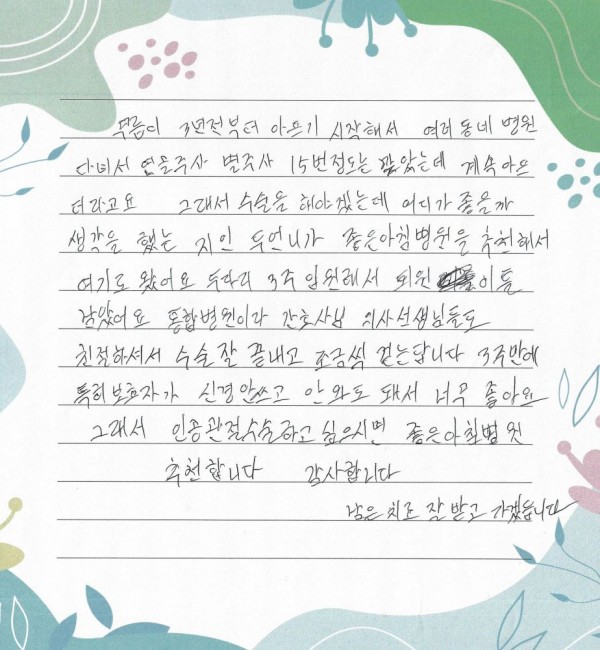 무릎이 3년전부터 아프기 시작해서 여러동네 병원
다니서 연골주사 별주사 15번정도는 맞았는데 계속아픈
더라고요 그래서 수술을 해야겠는데 어디가 좋을까
생각을 했는 지인 두언니가 좋은아침병원을 추천해서
여기로 왔어요 두다리 3주 입원해서 퇴원 이틀
남았어요 통합병원이라 간호사님 의사선생님들도
친절하셔서 수술 잘 끝내고 조금씩 걷는답니다 3주만에
특히보호자가 신경안쓰고 안와도 돼서 너무 좋아요
그래서 인공관절수술하고 싶으시면 좋은아침병원
추천합니다 감사합니다
남은 치료 잘 받고 가겠습니다